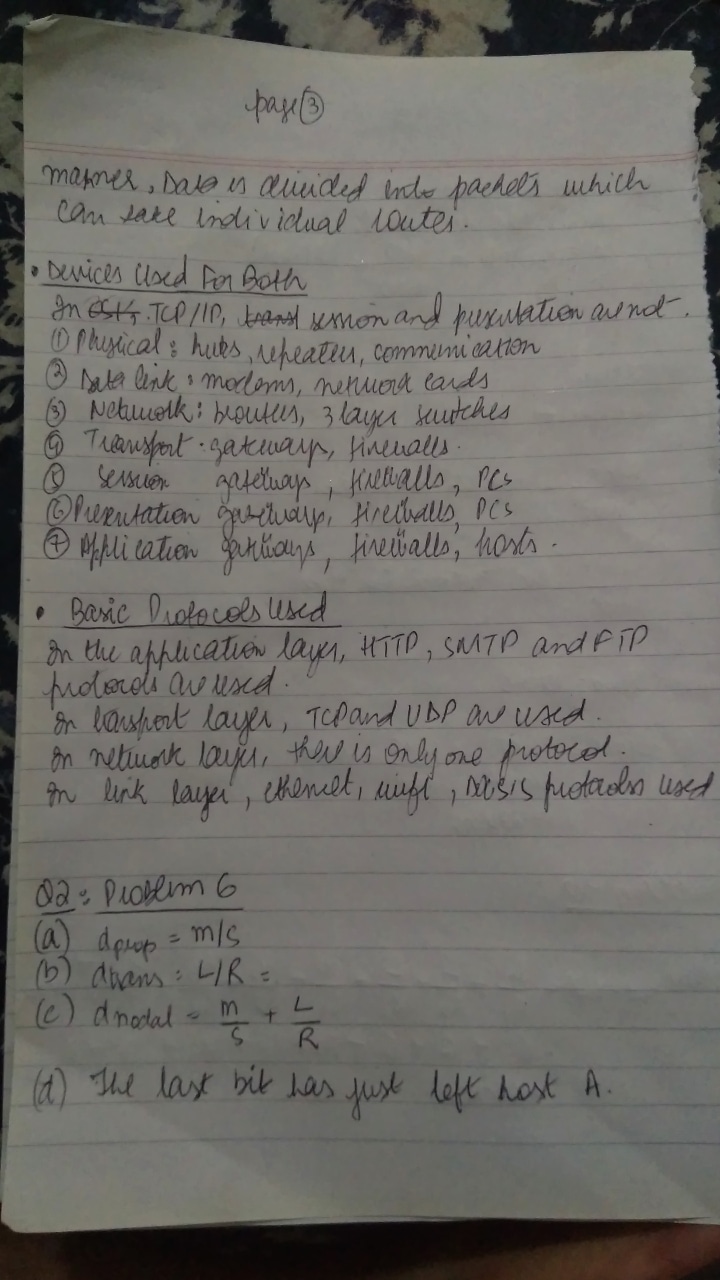 page ③
manner, Data is divided into packets which
can take individual routes.
• Devices Used For Both
In OSI, TCP/IP, transt session and presentation are not.
① Physical: hubs, repeaters, communication
② Data link: modems, network cards
③ Network: routers, 3 layer switches
④ Transport: gateways, firewalls.
⑤ Session gateways, firewalls, PCs
⑥ Presentation gateways, firewalls, PCs
⑦ Application gateways, firewalls, hosts.
• Basic Protocols Used
In the application layer, HTTP, SMTP and FTP
protocols are used.
In transport layer, TCP and UDP are used.
In network layer, there is only one protocol.
In link layer, ethernet, wifi, DOCSIS protocols used
Q2: Problem 6
(a) dprop = m/s
(b) dtrans = L/R =
(c) dnodal = m/s + L/R
(d) The last bit has just left host A.